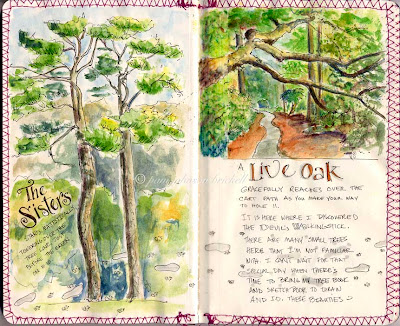 The
Sisters
STAND
TREE
A
Live Oak
GRACEFULLY REACHES OVER THE
CART PATH AS YOU MAKE YOUR WAY
TO HOLE 11.
IT IS HERE WHERE I DISCOVERED
THE DEVIL'S WALKINGSTICK.
THERE ARE MANY SMALL TREES
HERE THAT I'M NOT FAMILIAR
WITH. I CAN'T WAIT FOR THAT
SPECIAL DAY WHEN THERE'S
TIME TO BRING MY TREE BOOK
AND SKETCH BOOK TO DRAW
AND I.D. THESE BEAUTIES